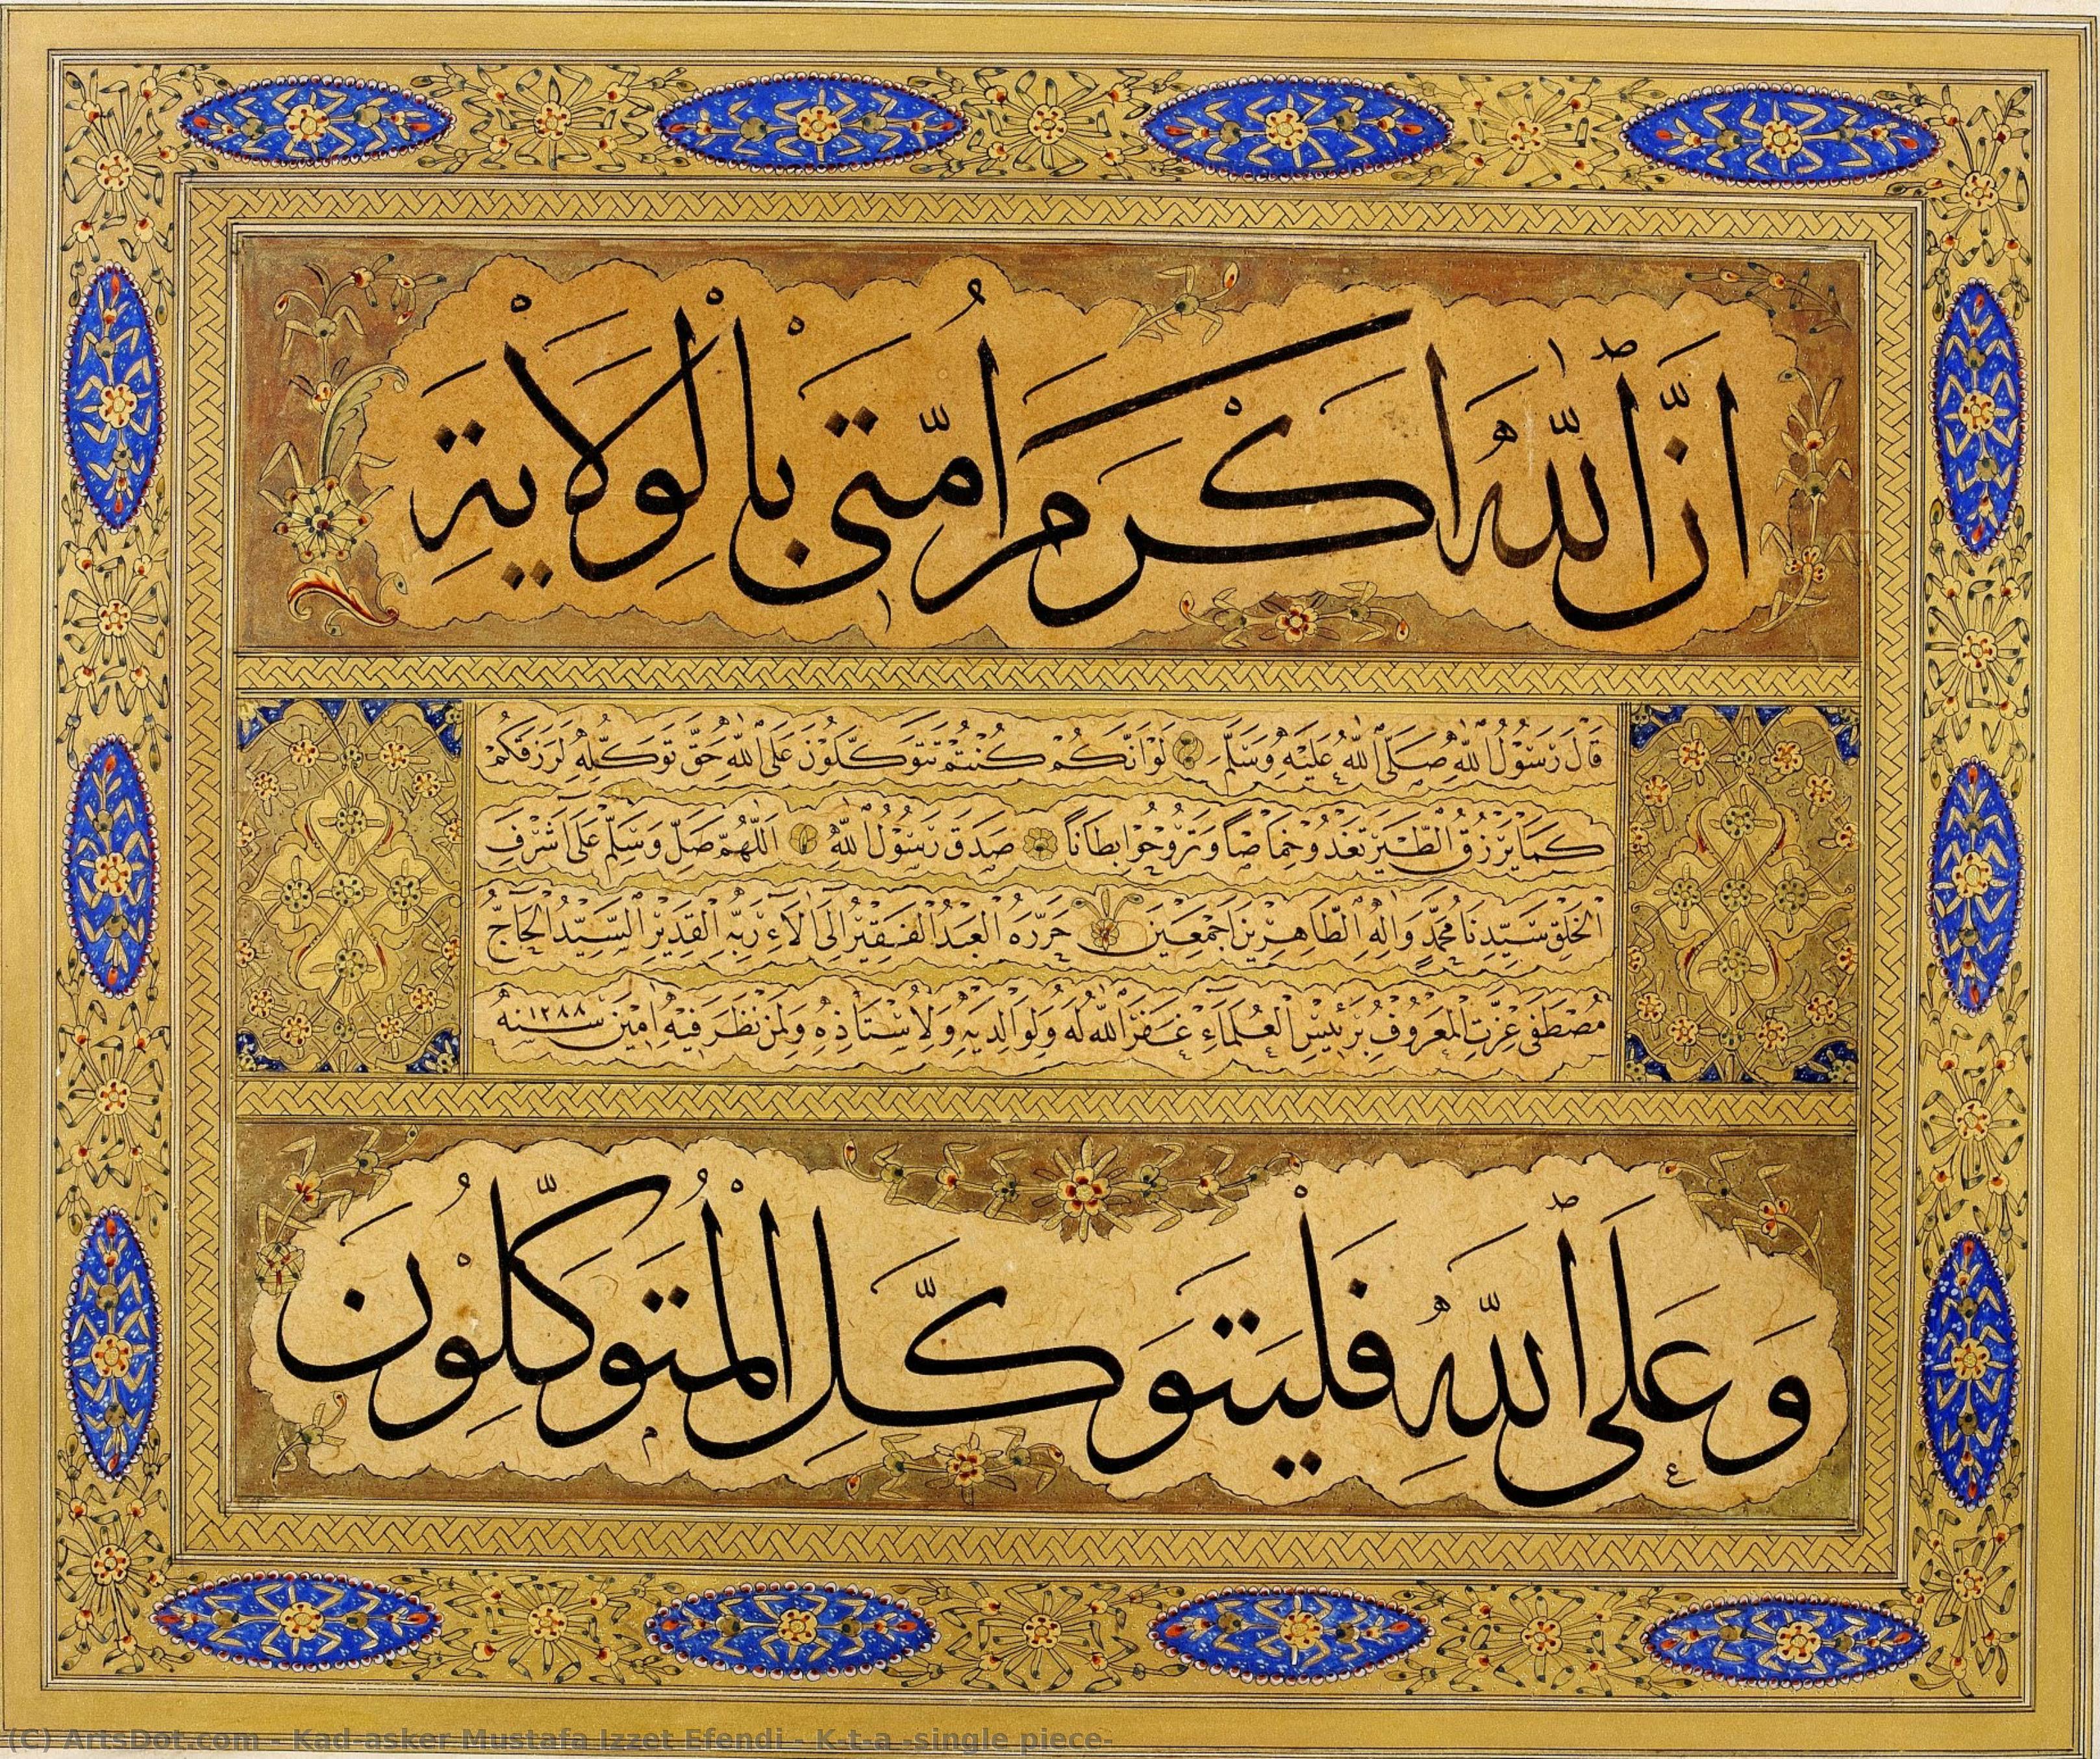 اِنَّ ٱللّٰهَ اَكْرَمَ اُمَّتٖى بِالْوِلَايَةِ
قَالَ رَسُوْلُ ٱللّٰهِ صَلَّى ٱللّٰهُ عَلَيْهِ وَسَلَّمَ لَوْ اَنَّكُمْ كُنْتُمْ تَتَوَكَّلُوْنَ عَلَى ٱللّٰهِ حَقَّ تَوَكُّلِهِ لَرَزَقَكُمْ
كَمَا يَرْزُقُ ٱلطَّيْرَ تَغْدُوْ خِمَاصًا وَتَرُوْحُوْا بِطَانًا صَدَقَ رَسُوْلُ ٱللّٰهِ اَللّٰهُمَّ صَلِّ وَسَلِّمْ عَلَى اَشْرَفِ
الْخَلْقِ سَيِّدِنَا مُحَمَّدٍ وَاٰلِهِ ٱلطَّاهِرِيْنَ اَجْمَعِيْنَ حَرَّرَهُ الْعَبْدُ الْفَقِيْرُ اِلَى اٰلَاءِ رَبِّهِ الْقَدِيْرِ السَّيِّدُ الْحَاجُّ
مُصْطَفٰى عِزَّتِ الْمَعْرُوْفُ بِرَئِيْسِ الْعُلَمَاءِ غَفَرَ ٱللّٰهُ لَهُ وَلِوَالِدَيْهِ وَلِاُسْتَاذِهِ وَلِمَنْ نَظَرَ فِيْهِ اٰمِيْنَ سَنَه ١٢٨٨
وَعَلَى ٱللّٰهِ فَلْيَتَوَكَّلِ الْمُتَوَكِّلُوْنَ
(C) ArtsDot.com - Kad-asker Mustafa Izzet Efendi - K-t-a -single piece-